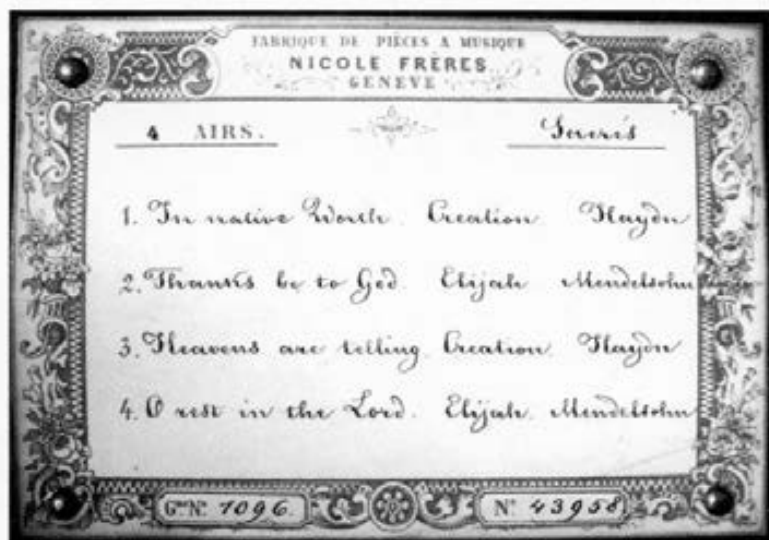 FABRIQUE DE PIÈCES A MUSIQUE
NICOLE FRÈRES
GENÈVE
4 AIRS. Sacrés
1. In native Worth. Creation. Haydn
2. Thanks be to God. Elijah. Mendelsohn
3. Heavens are telling. Creation. Haydn
4. O rest in the Lord. Elijah. Mendelsohn
Gme No. 1096. No. 43958